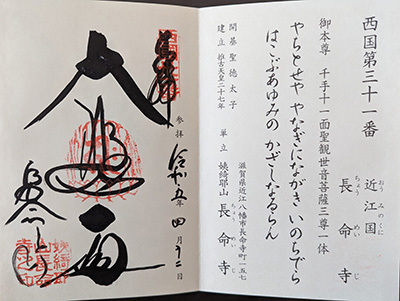 西国第三十一番
近江国
おうみのくに
長命寺
ちょうめいじ
御本尊 千手十一面聖観世音菩薩三尊一体
やちとせや やなぎにながき いのちでら
はこぶあゆみの かざしなるらん
開基 聖徳太子
建立 推古天皇二十七年
滋賀県近江八幡市長命寺町一五七
単立 姨綺耶山 長命寺
ちょうめいじ
参拝
令和五年 四月十二日
長命寺